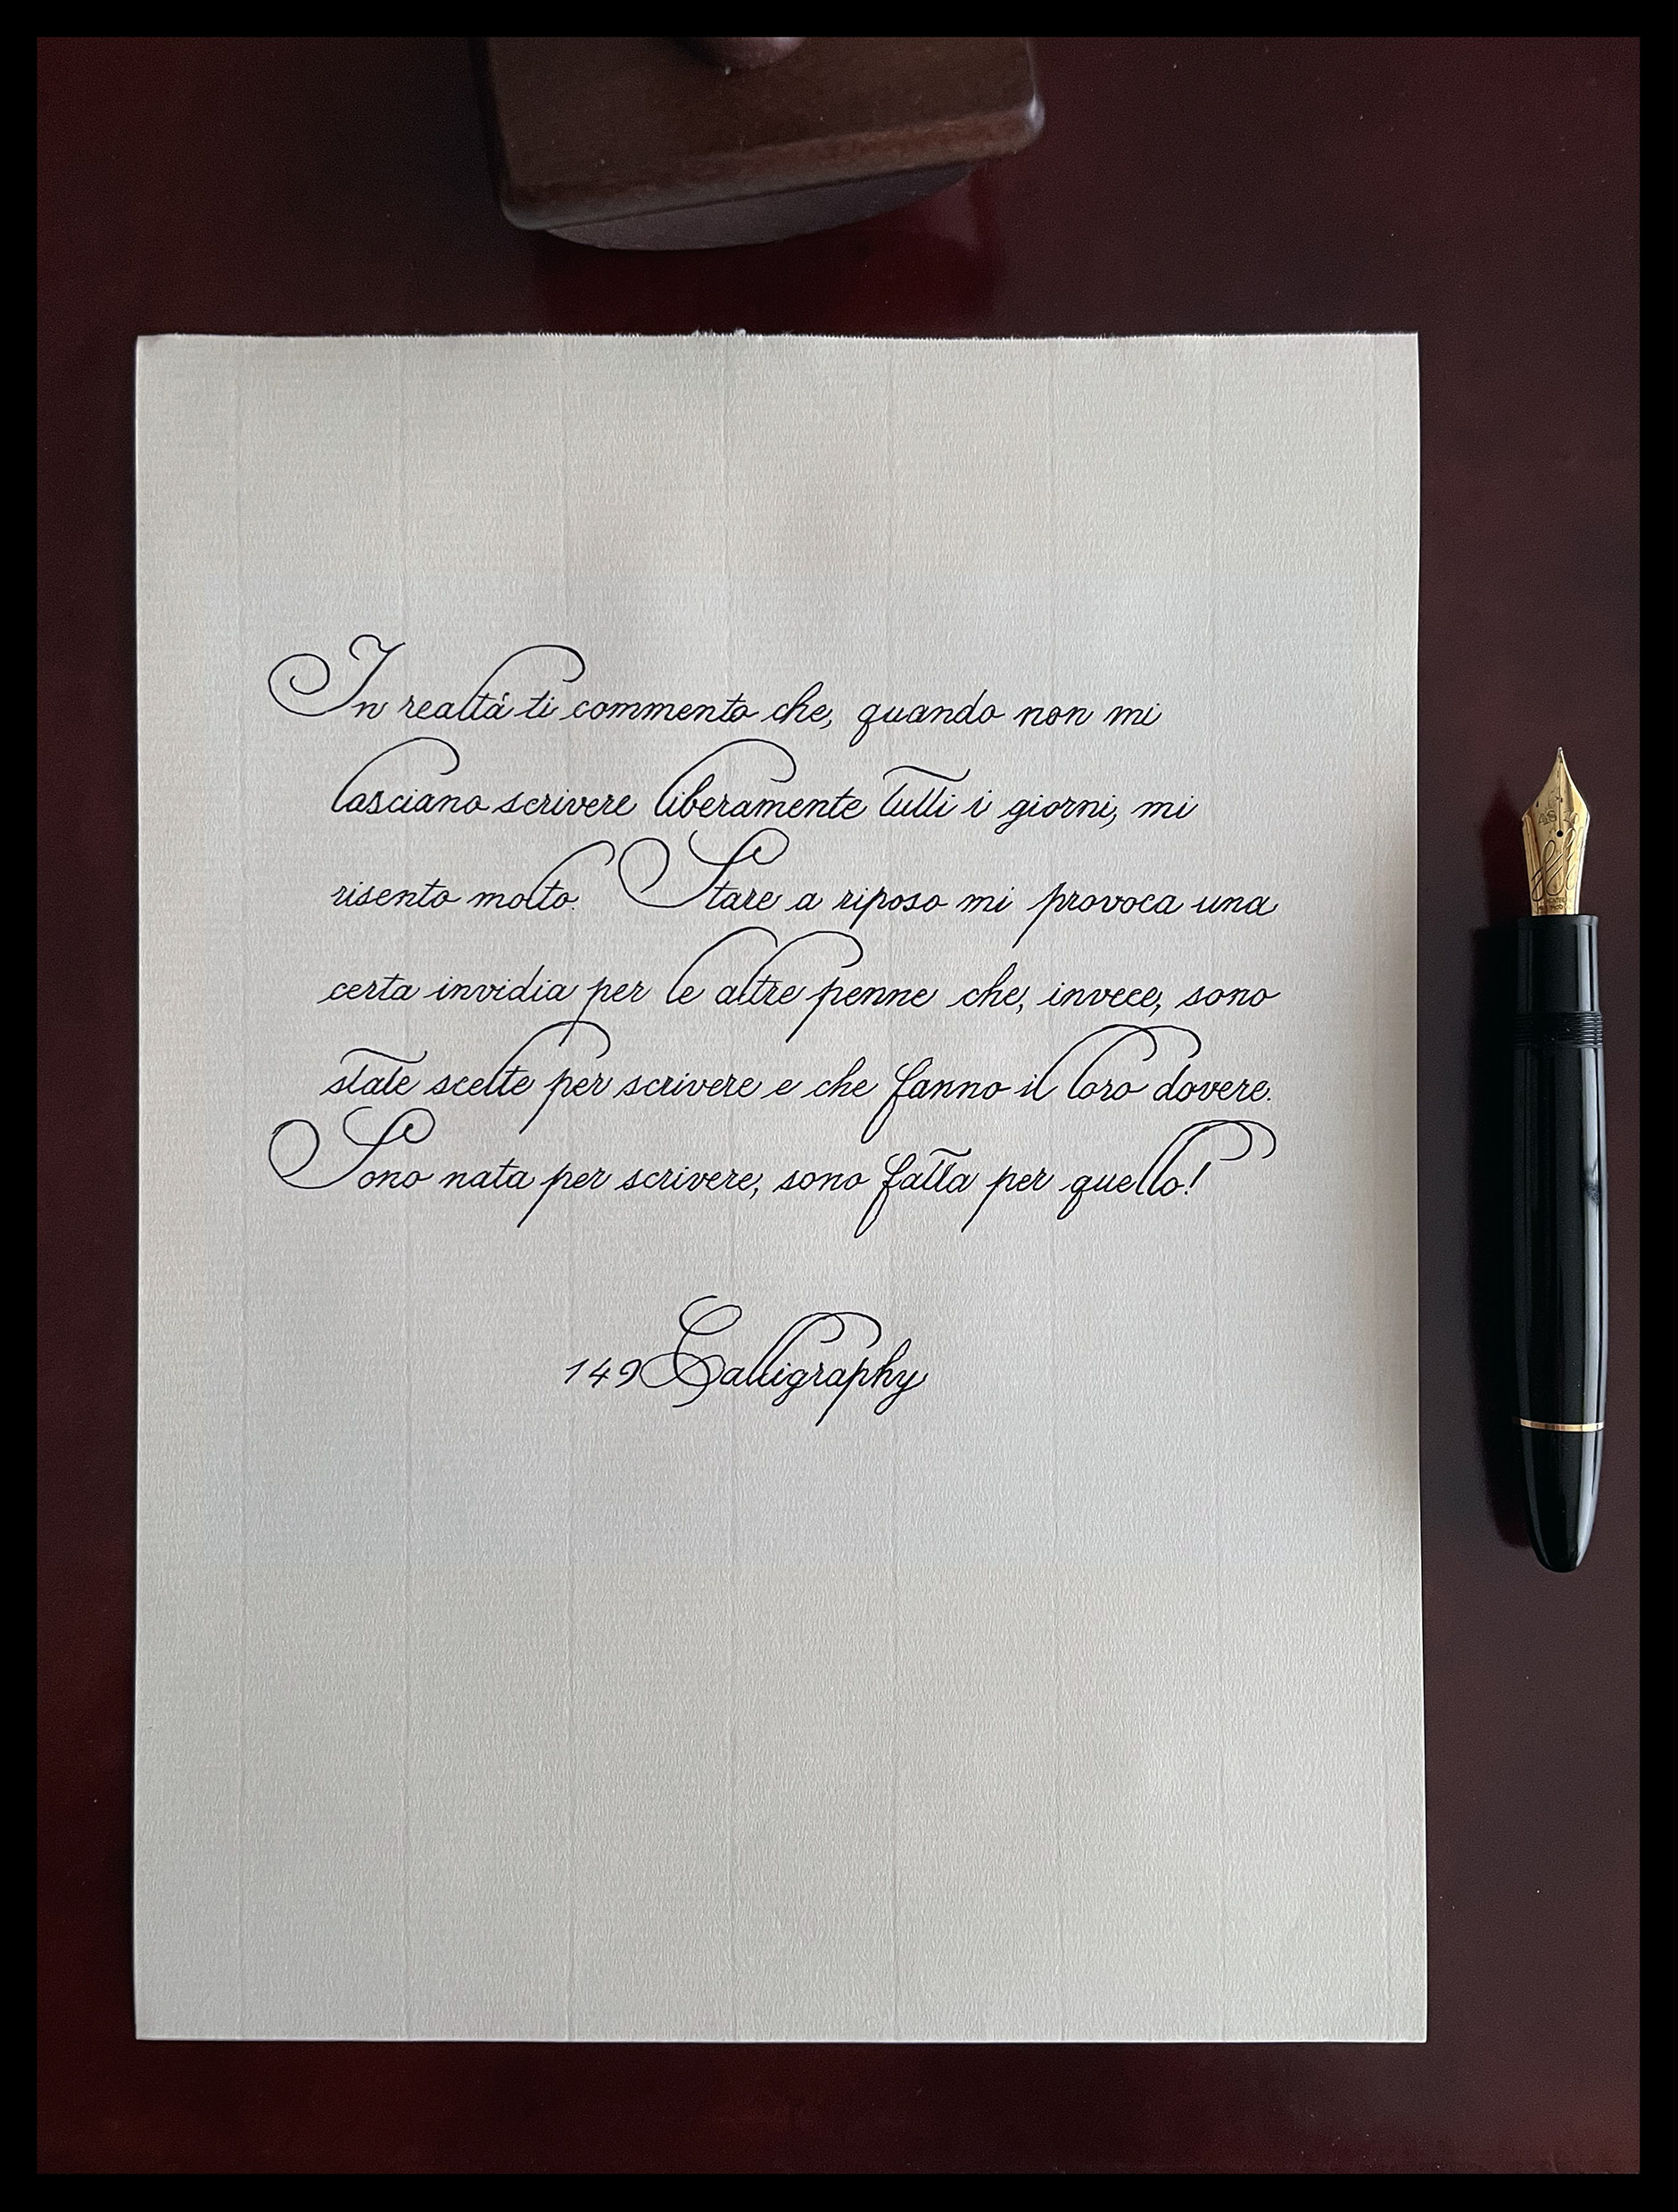 In realtà ti commento che, quando non mi
lasciano scrivere liberamente tutti i giorni, mi
risento molto. Stare a riposo mi provoca una
certa invidia per le altre penne che, invece, sono
state scelte per scrivere e che fanno il loro dovere.
Sono nata per scrivere, sono fatta per quello!
149 Calligraphy